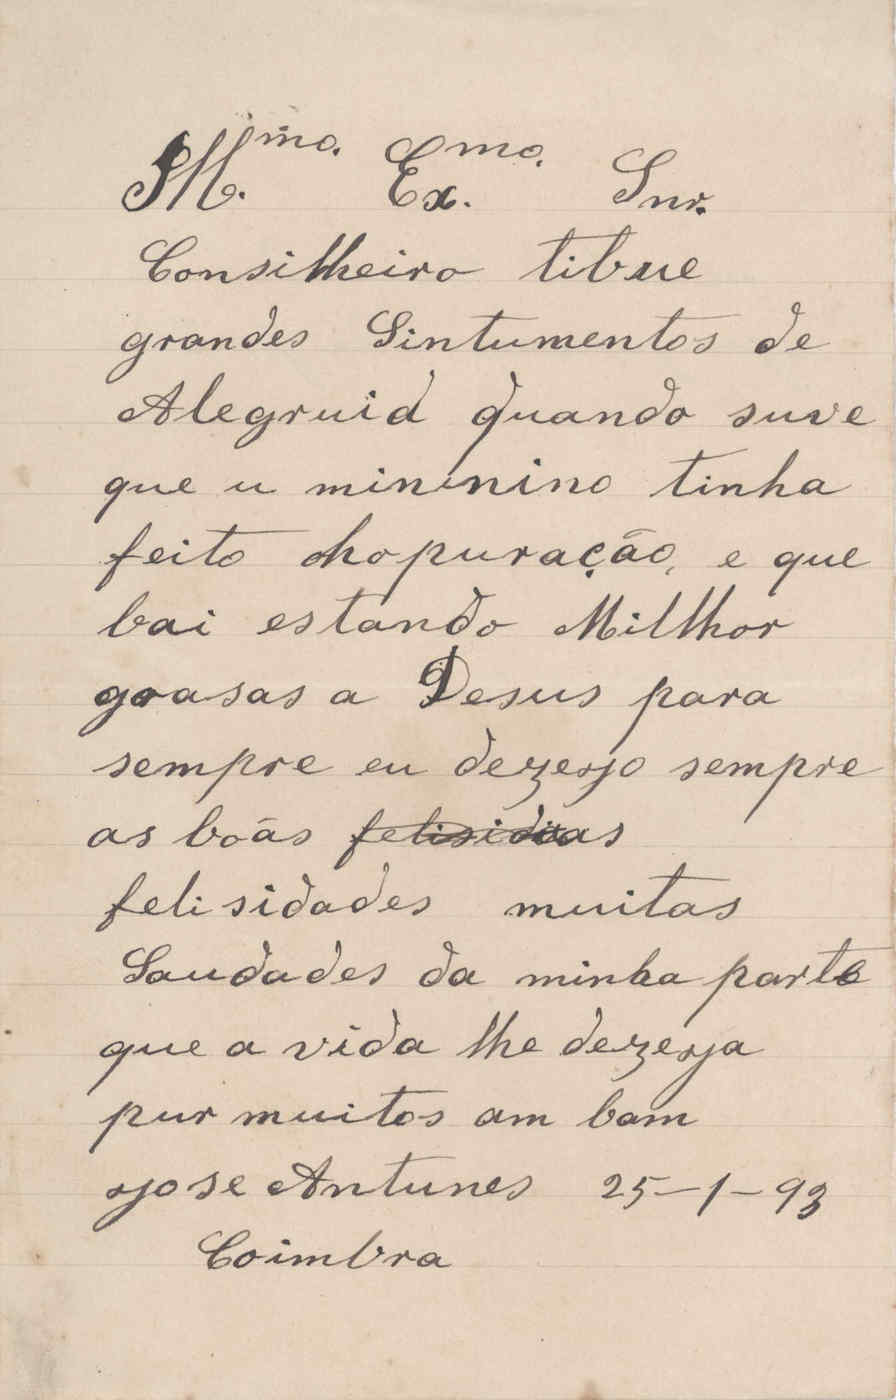 Ill.mo. Ex.mo. Snr.
Consilheiro tibue
grandes Sintumentos de
Alegruia quando suve
que u mininino tinha
feito ahopuração, e que
bai estando Milhor
grasas a Desus para
sempre eu dezerjo sempre
as boãs felisidias
felisidades muitas
Saudades da minha parte
que a vida lhe dezerja
pur muitos am bam
rjose Antunes 25-1-93
Coimbra